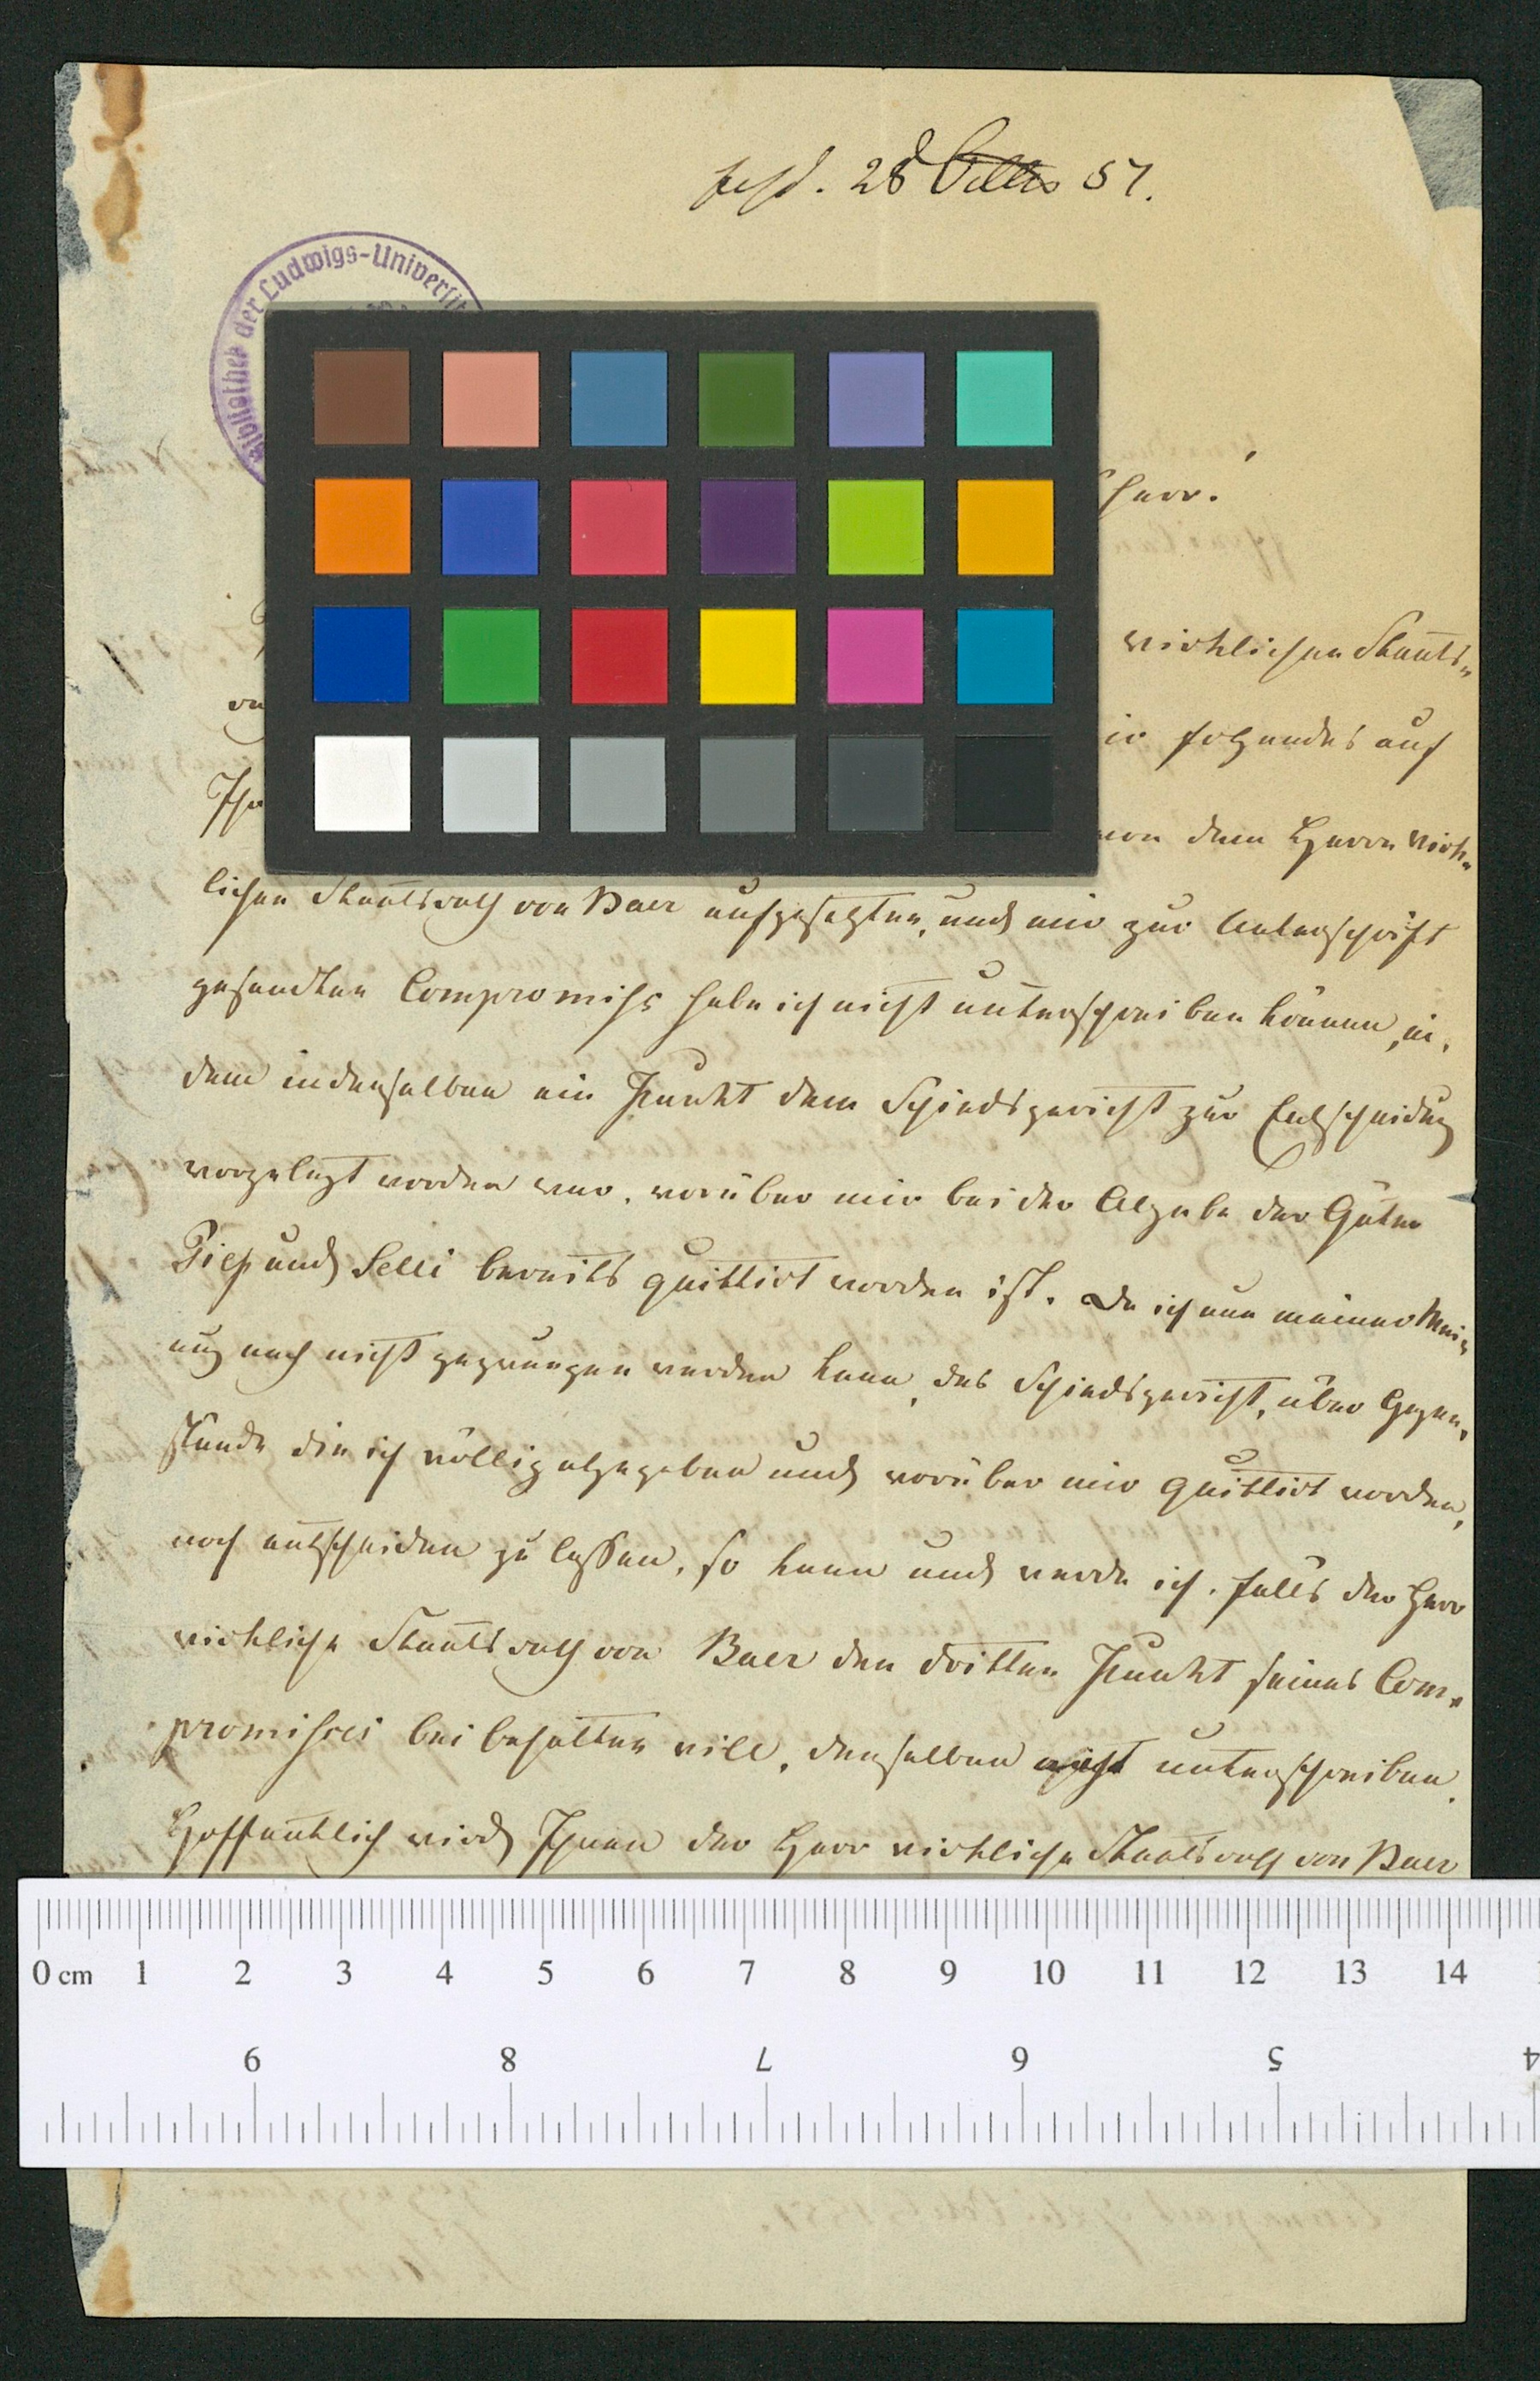 28 51.
Bibliothek der Ludwigs-Universit
Herr.
wirklichen Staats-
ir folgendes auf
Ihr
von dem Herrn wirk-
lichen Staatsrath von Baer aufgesetzten, und mir zur Unterschrift
gesandten Compromiss habe ich nicht unterschreiben können, in-
dem in denselben ein Punkt dem Schiedsgericht zur Entscheidung
vorgelegt worden war, worüber mir bei der Abgabe der Güter
Piep und Selli bereits quittirt worden ist. Da ich nun meiner Mein-
ung nach nicht gezwungen werden kann, das Schiedsgericht, über Gegen-
stände die ich völlig abgegeben und worüber mir quittirt worden,
noch entscheiden zu lassen, so kann und werde ich, falls der Herr
wirkliche Staatsrath von Baer den dritten Punkt seines Com-
promisses beibehalten will, denselben nicht unterschreiben.
Hoffentlich wird Ihnen der Herr wirkliche Staatsrath von Baer
0 cm 1 2 3 4 5 6 7 8 9 10 11 12 13 14
9 8 7 6 5 4